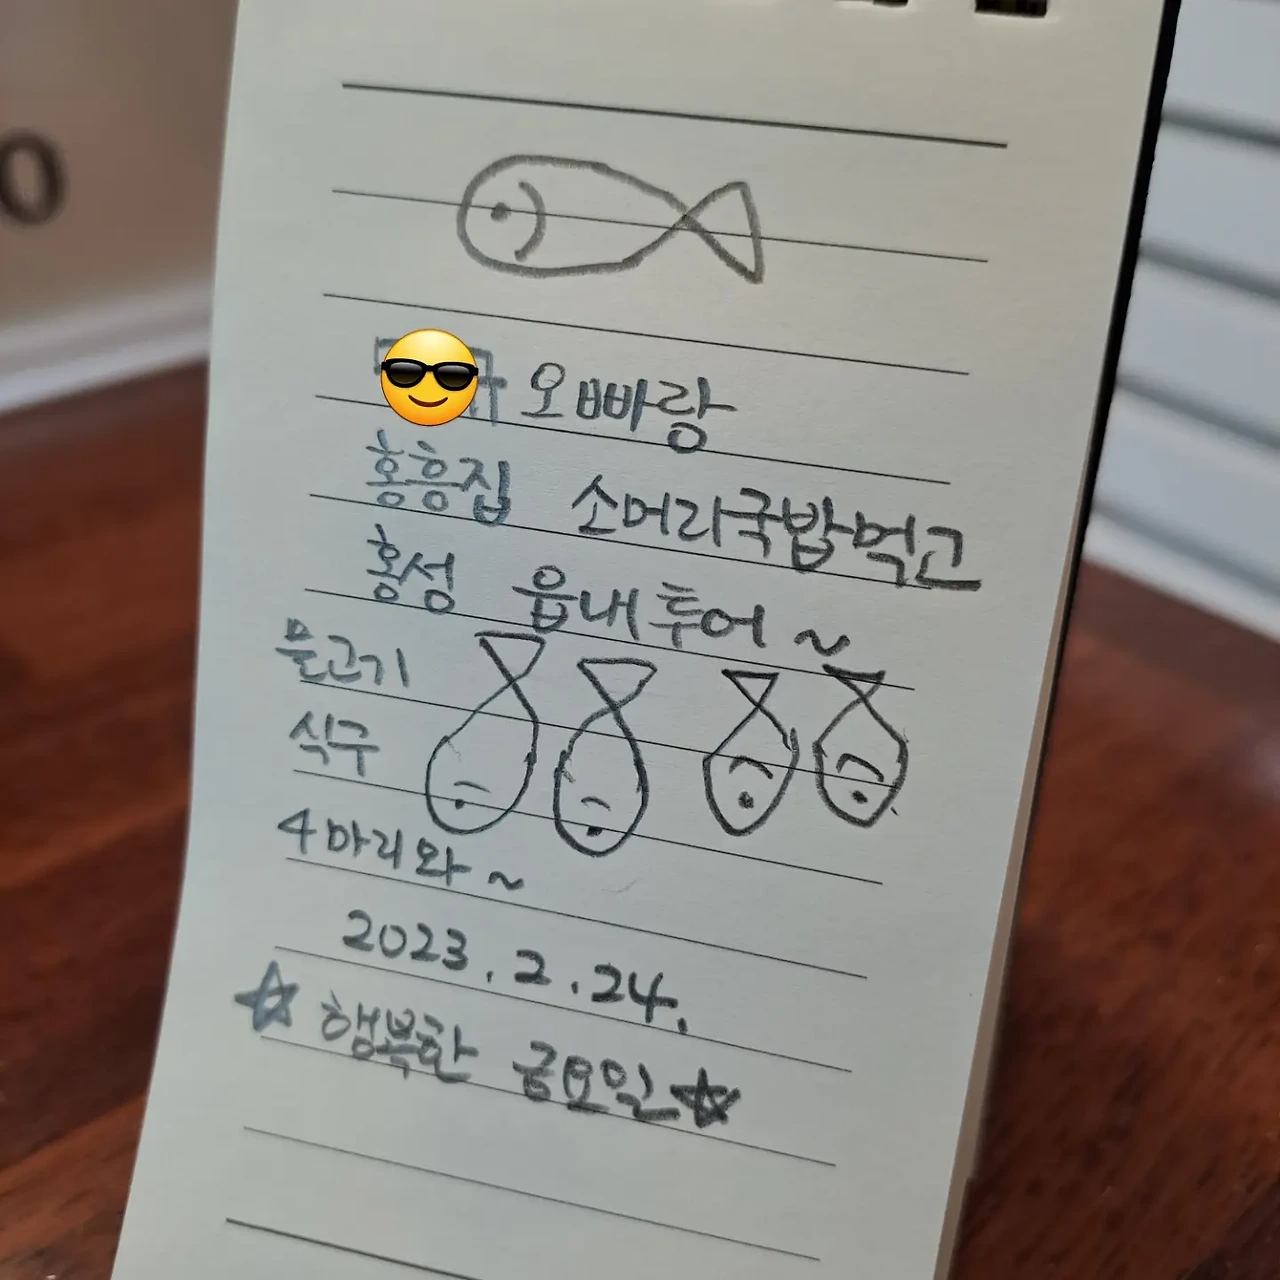 오빠랑
홍흥집 소머리국밥먹고
홍성 읍내투어~
물고기
식구
4마리와~
2023.2.24.
☆ 행복한 금요일☆